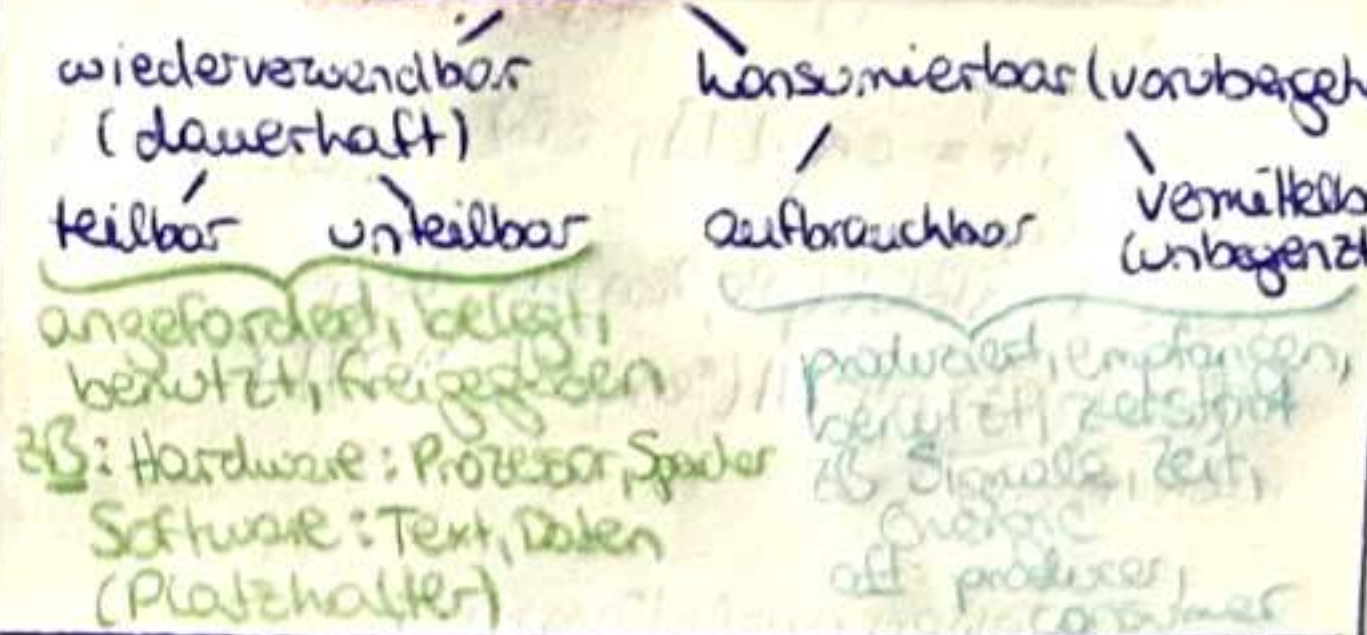 wiederverwendbar
(dauerhaft)
teilbar unteilbar
angefordert, belegt,
benutzt, freigegeben
zB: Hardware: Prozessor, Speicher
Software: Text, Daten
(Platzhalter)
konsumierbar (vorübergeh
aufbrauchbar
vermittelb
(unbegrenzt
produziert, empfangen,
benutzt, zerstört
zB Signale, Zeit,
Energie
oft producer,
consumer